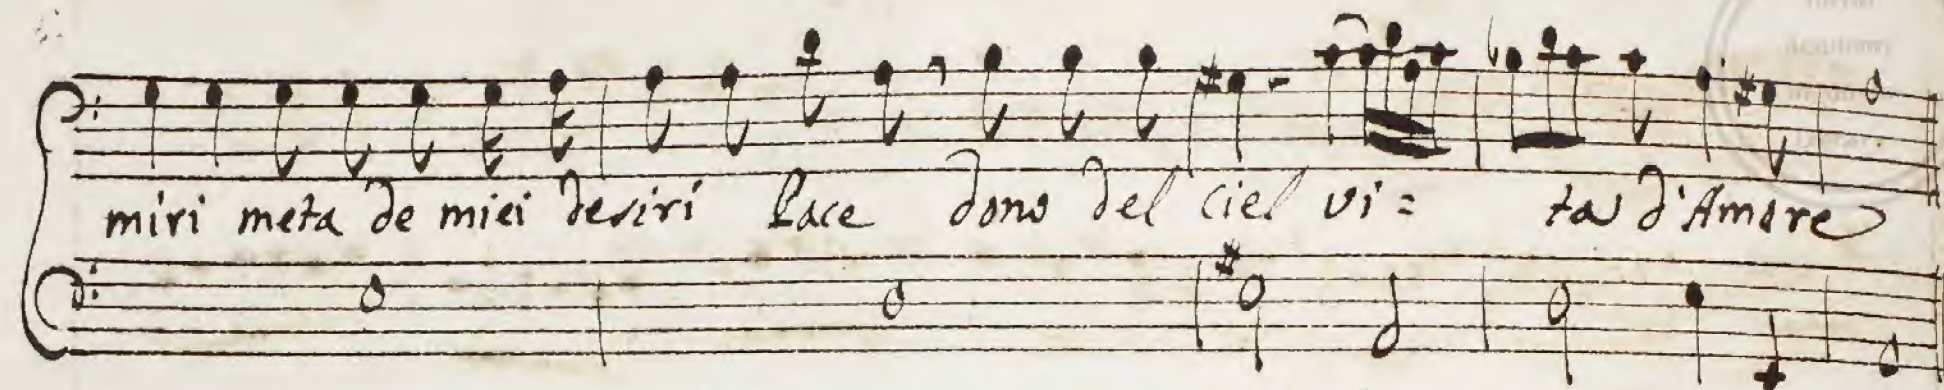 miri meta de miei desiri Pace dono del ciel vi= ta d'Amore